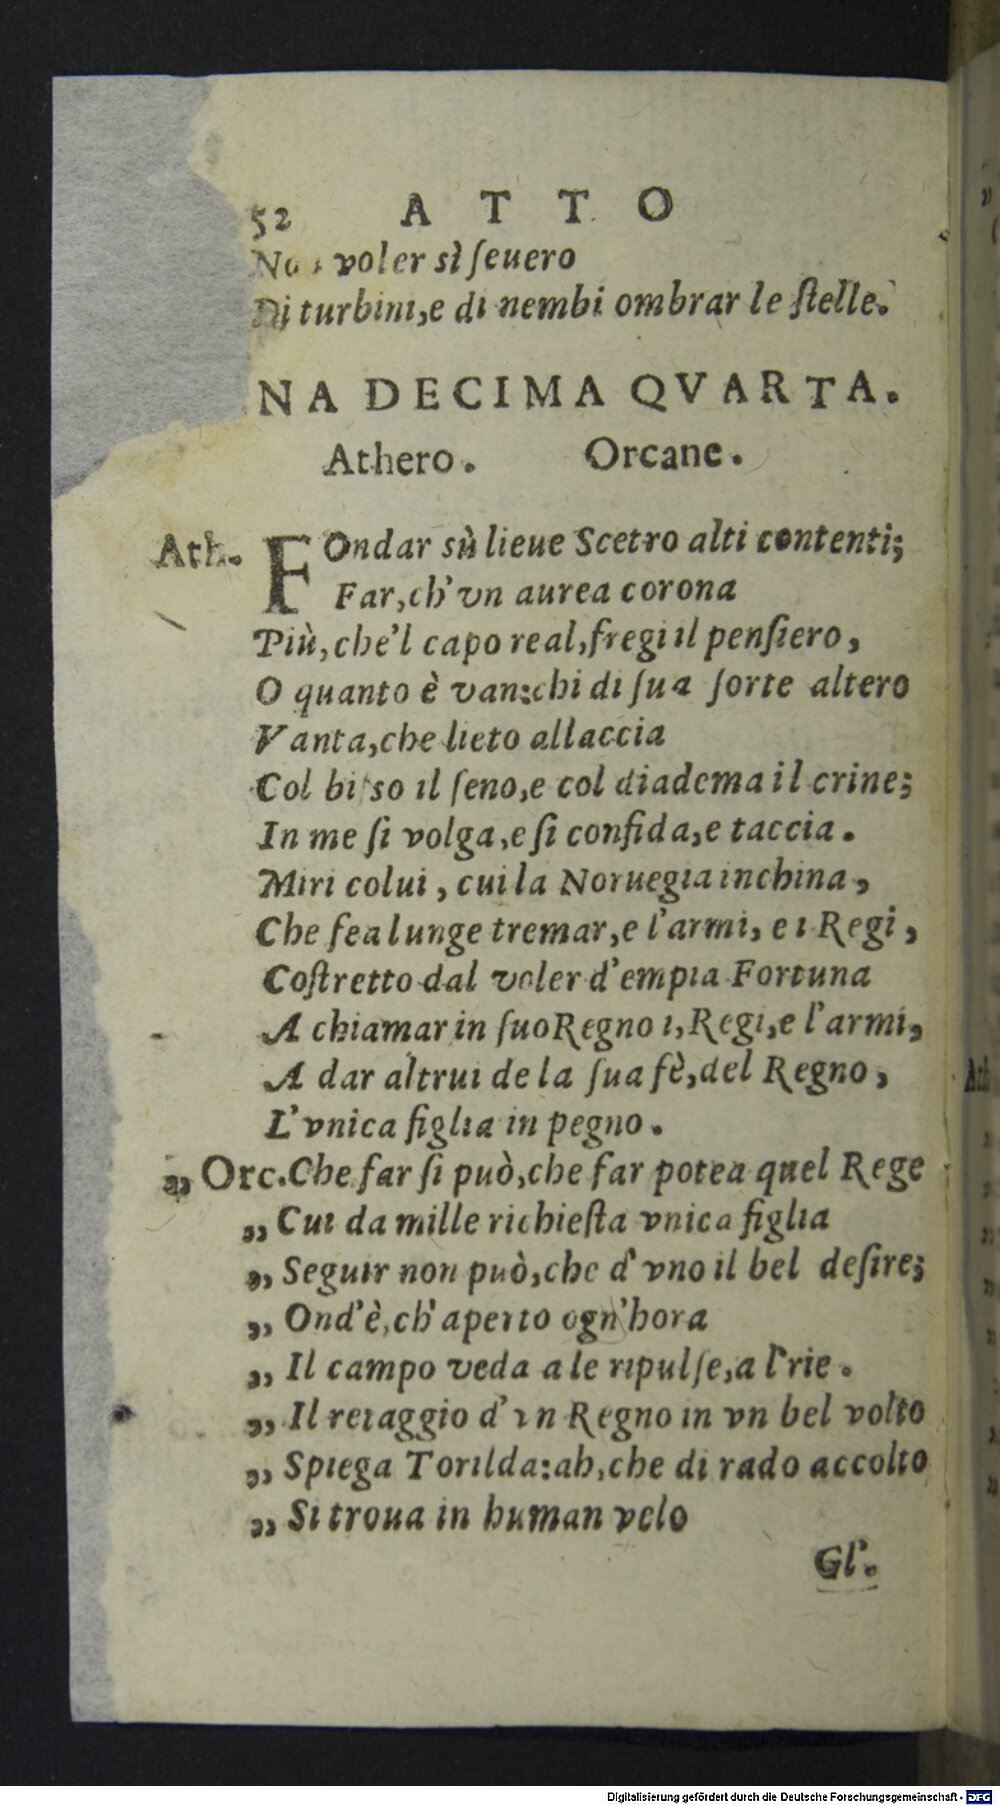 52 ATTO
voler sì ſeuero
Di turbini,e di nembi ombrar le ſtelle.
NA DECIMA QVARTA.
Athero. Orcane.
Ath. FOndar sù lieue Scetro alti contenti;
Far,ch'vn aurea corona
Più,che'l capo real,fregi il penſiero,
O quanto è van:chi di ſua ſorte altero
Vanta,che lieto allaccia
Col biſso il ſeno,e col diadema il crine;
In me ſi volga,e ſi confida,e taccia.
Miri colui, cui la Noruegia inchina,
Che fea lunge tremar,e l'armi, e i Regi,
Coſtretto dal voler d'empia Fortuna
A chiamar in ſuo Regno i,Regi,e l'armi,
A dar altrui de la ſua fè,del Regno,
L'vnica figlia in pegno.
„ Orc.Che far ſi può,che far potea quel Rege
„ Cui da mille richieſta vnica figlia
„ Seguir non può,che d'vno il bel deſire;
„ Ond'è,ch'aperto ogn'hora
„ Il campo veda a le ripulſe,a l'rie.
„ Il retaggio d'vn Regno in vn bel volto
„ Spiega Torilda:ah,che di rado accolto
„ Si troua in human velo
Gl'.
Digitalisierung gefördert durch die Deutsche Forschungsgemeinschaft - DFG